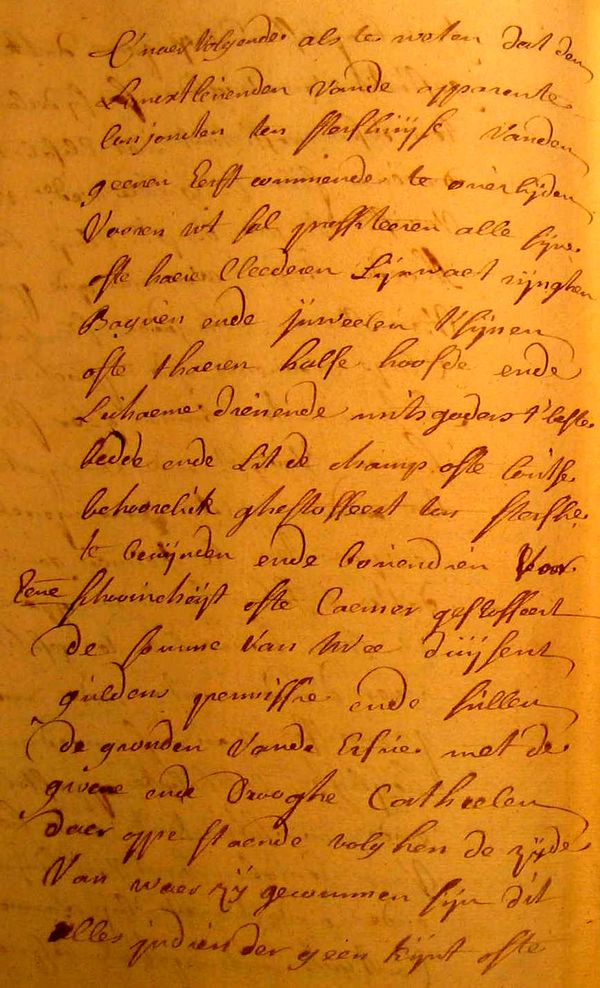 naervolgende als te weten dat den
Lanxtlevenden vande apparente
Conjoncten ten sterfhuijse vanden
geenen Eerst commende te overlijden
Vooren uijt sal proffiteeren alle sijn
ofte haere Cleederen Lijnwaet ringhen
Baguen ende juweelen t'sijnen
ofte thaeren halse hoofde ende
Lichaeme dienende mitsgaders t'beste
bedde ende Lit de champ ofte coutse
behoorelick ghestoffeert ten sterfhe
te bevijnden ende boven dien Voor
Eene schoone ofte Caemer gestoffeert
de somme van twee duijsent
guldens permissie ende sullen
de gronden vande Erfve met de
groene ende drooghe Catheelen
daer oppe staende volghen de zijde
Van waer zij gecommen sijn dit
alles indien der geen kijnt ofte